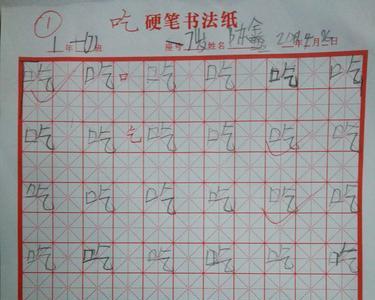 ① 吃 硬笔书法纸
1年 班 座号 7岁 姓名 鑫 年 月 日
吃 吃 口 吃 吃 吃 吃
吃 吃 乞 吃 吃 吃 吃
吃 吃 吃 吃 吃 吃
吃 吃 吃 吃 吃 吃